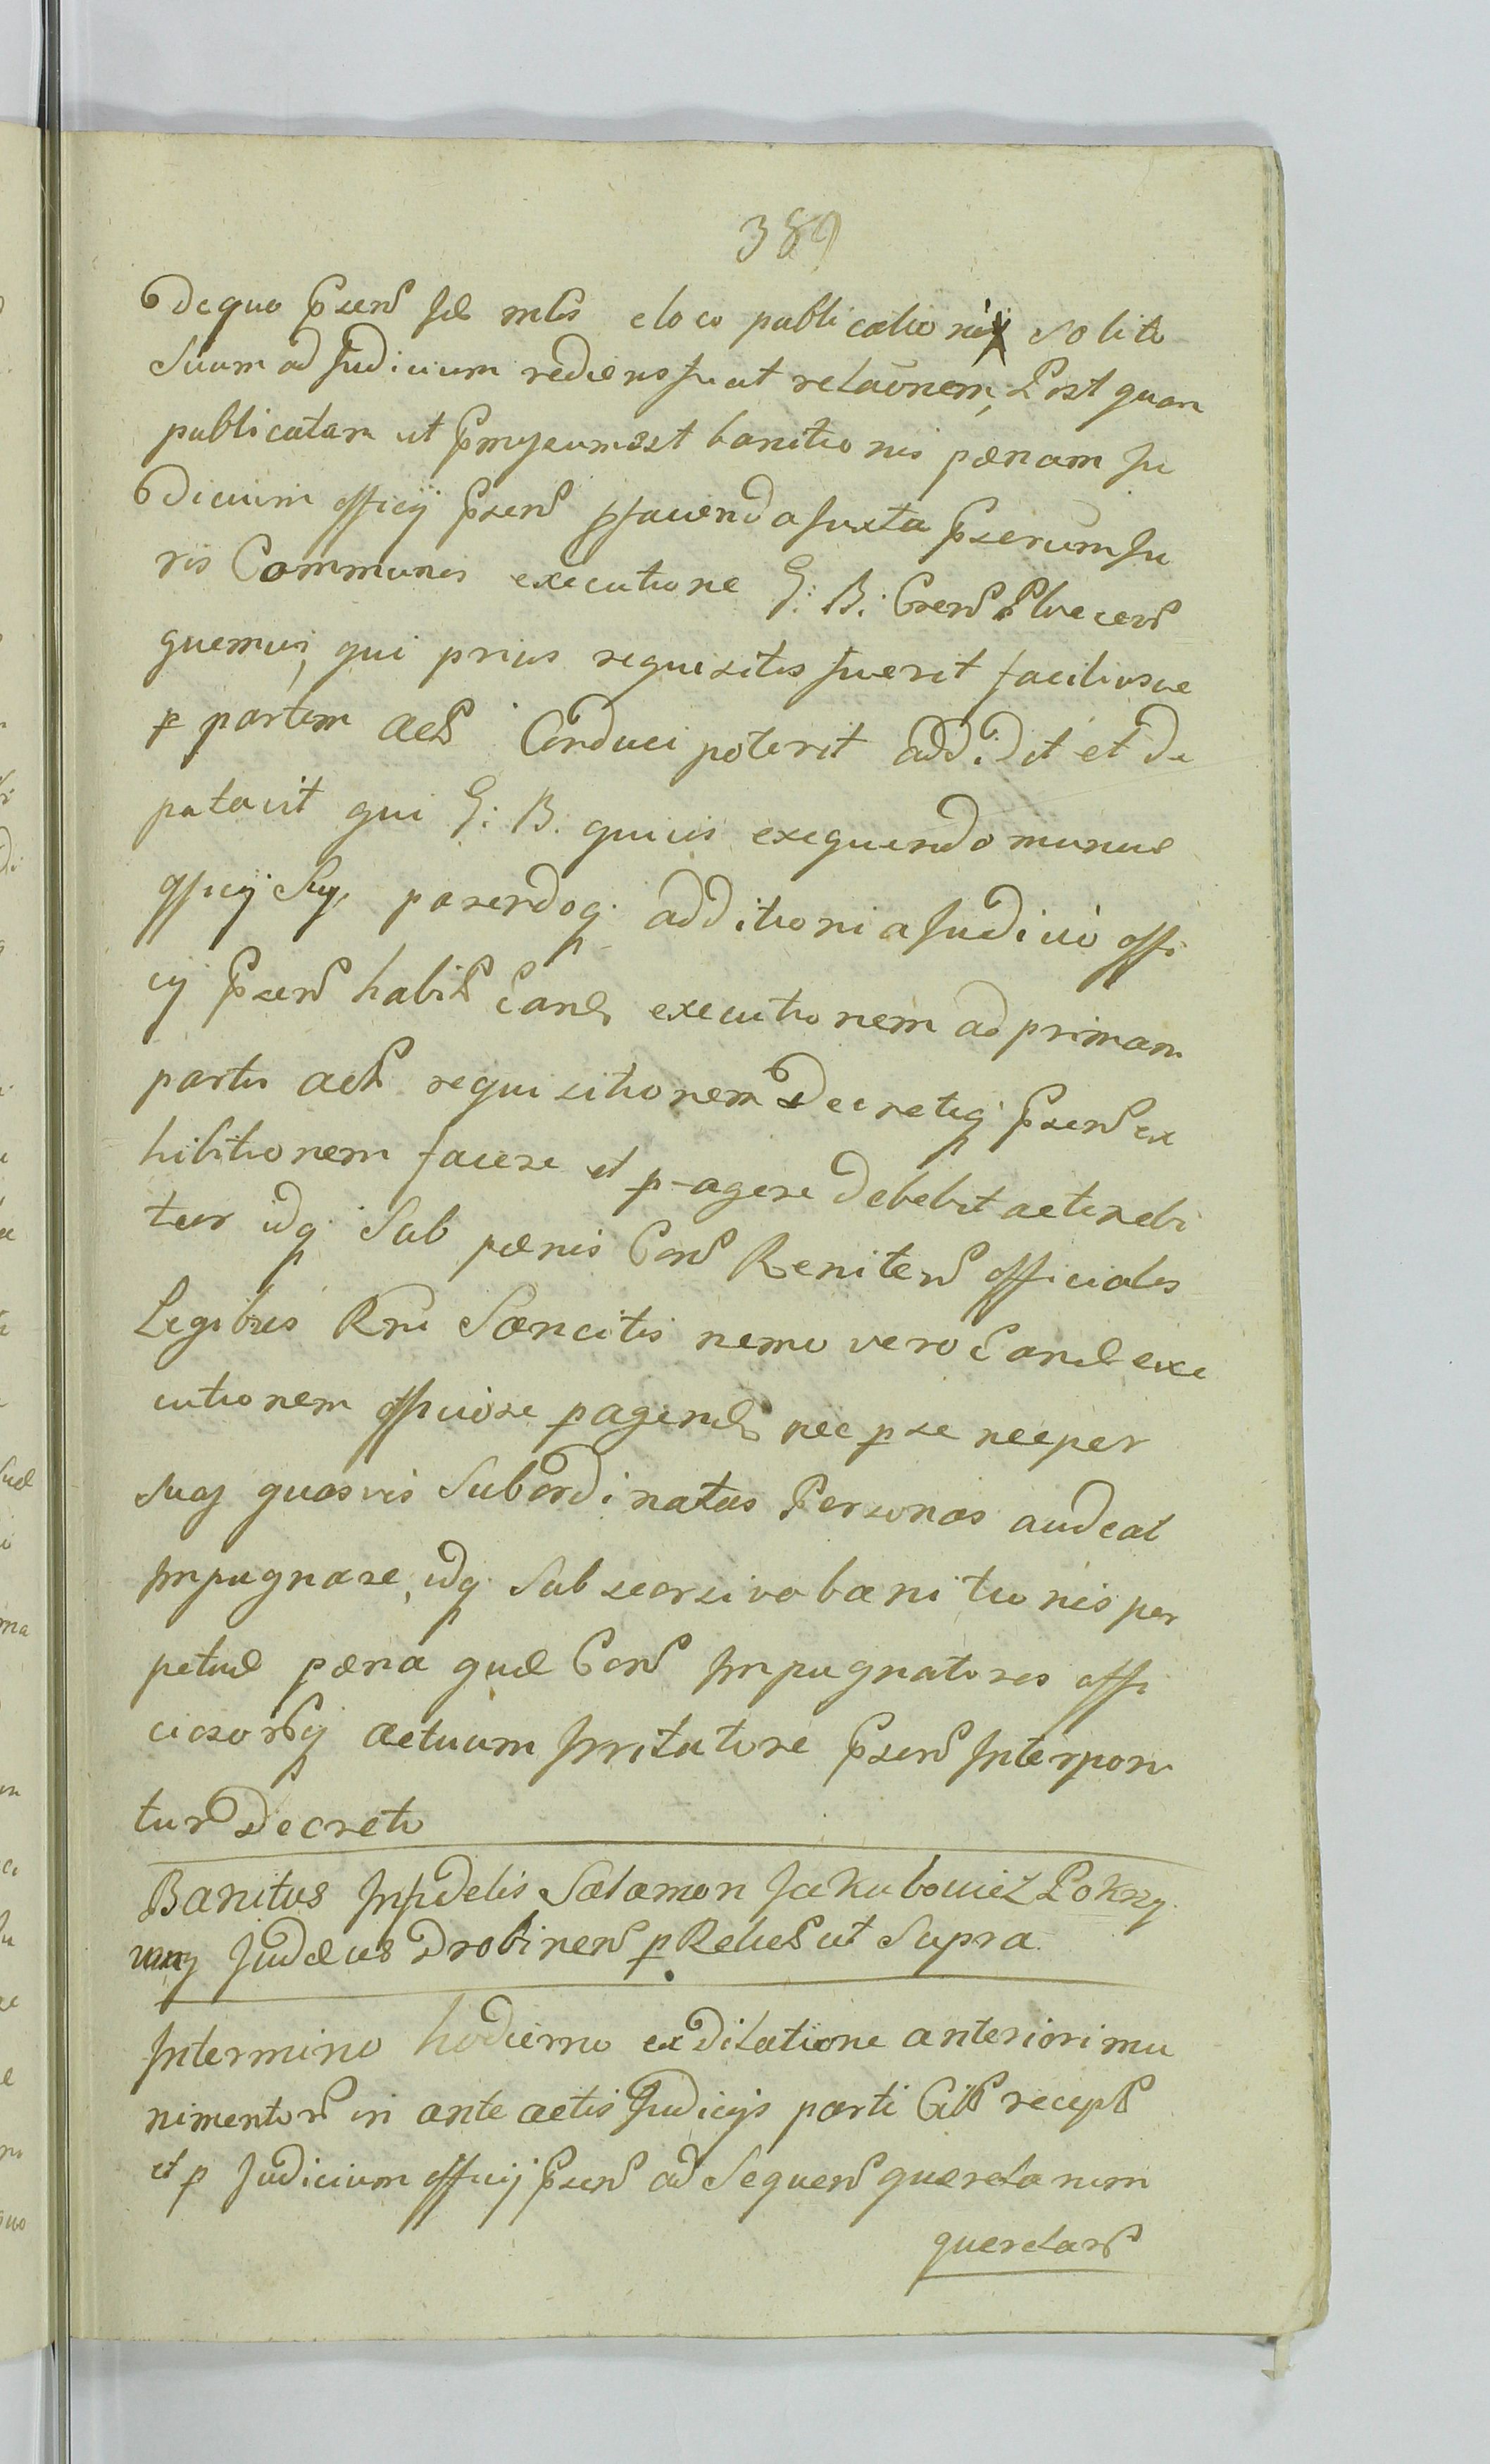 389
de quo Psens fil mlis e loco publicationis solito
Suum ad Judicium rediens fecit relaonem, Post quam
publicatam ut Pmissum est banitionis pænam Ju
dicium officij Psens p facienda Juxta Pserum Ju
ris Communis executione G: B: Csens Plocens
quemvis, qui prius requisitus fuerit faciliusve
p partem Act Conduci poterit addidit et de
putavit qui G: B. quivis exequendo munus
officij Sui, parendoq additioni a Judicio offi
cij Psens habit Eand executionem ad primam
partis act requisitionem Decretiq Psens ex
hibitionem facere et p-agere debebit ac tenebi
tur idq Sub pænis Cons Renitens officiales
Legibus Rni Sancitis nemo vero Eand exe
cutionem officiose pagend nec p se nec per
suas quasvis Subordinatas Personas audeat
Impugnare, idq Sub seorsiva banitionis per
petuæ pæna quæ Cons Impugnatores offi
ciosorq actuum Irritatore Psens Interponi
tur Decreto
Banitus Infidelis Salamon Jakubowicz Pokrzy
wny Judæus Drobinens p Relict ut Supra
In termino hodierno ex dilatione anteriori mu
nimentor in ante actis Judicijs parti Citt recept
et p Judicium officij Psens ad Sequens querelarum
querelars